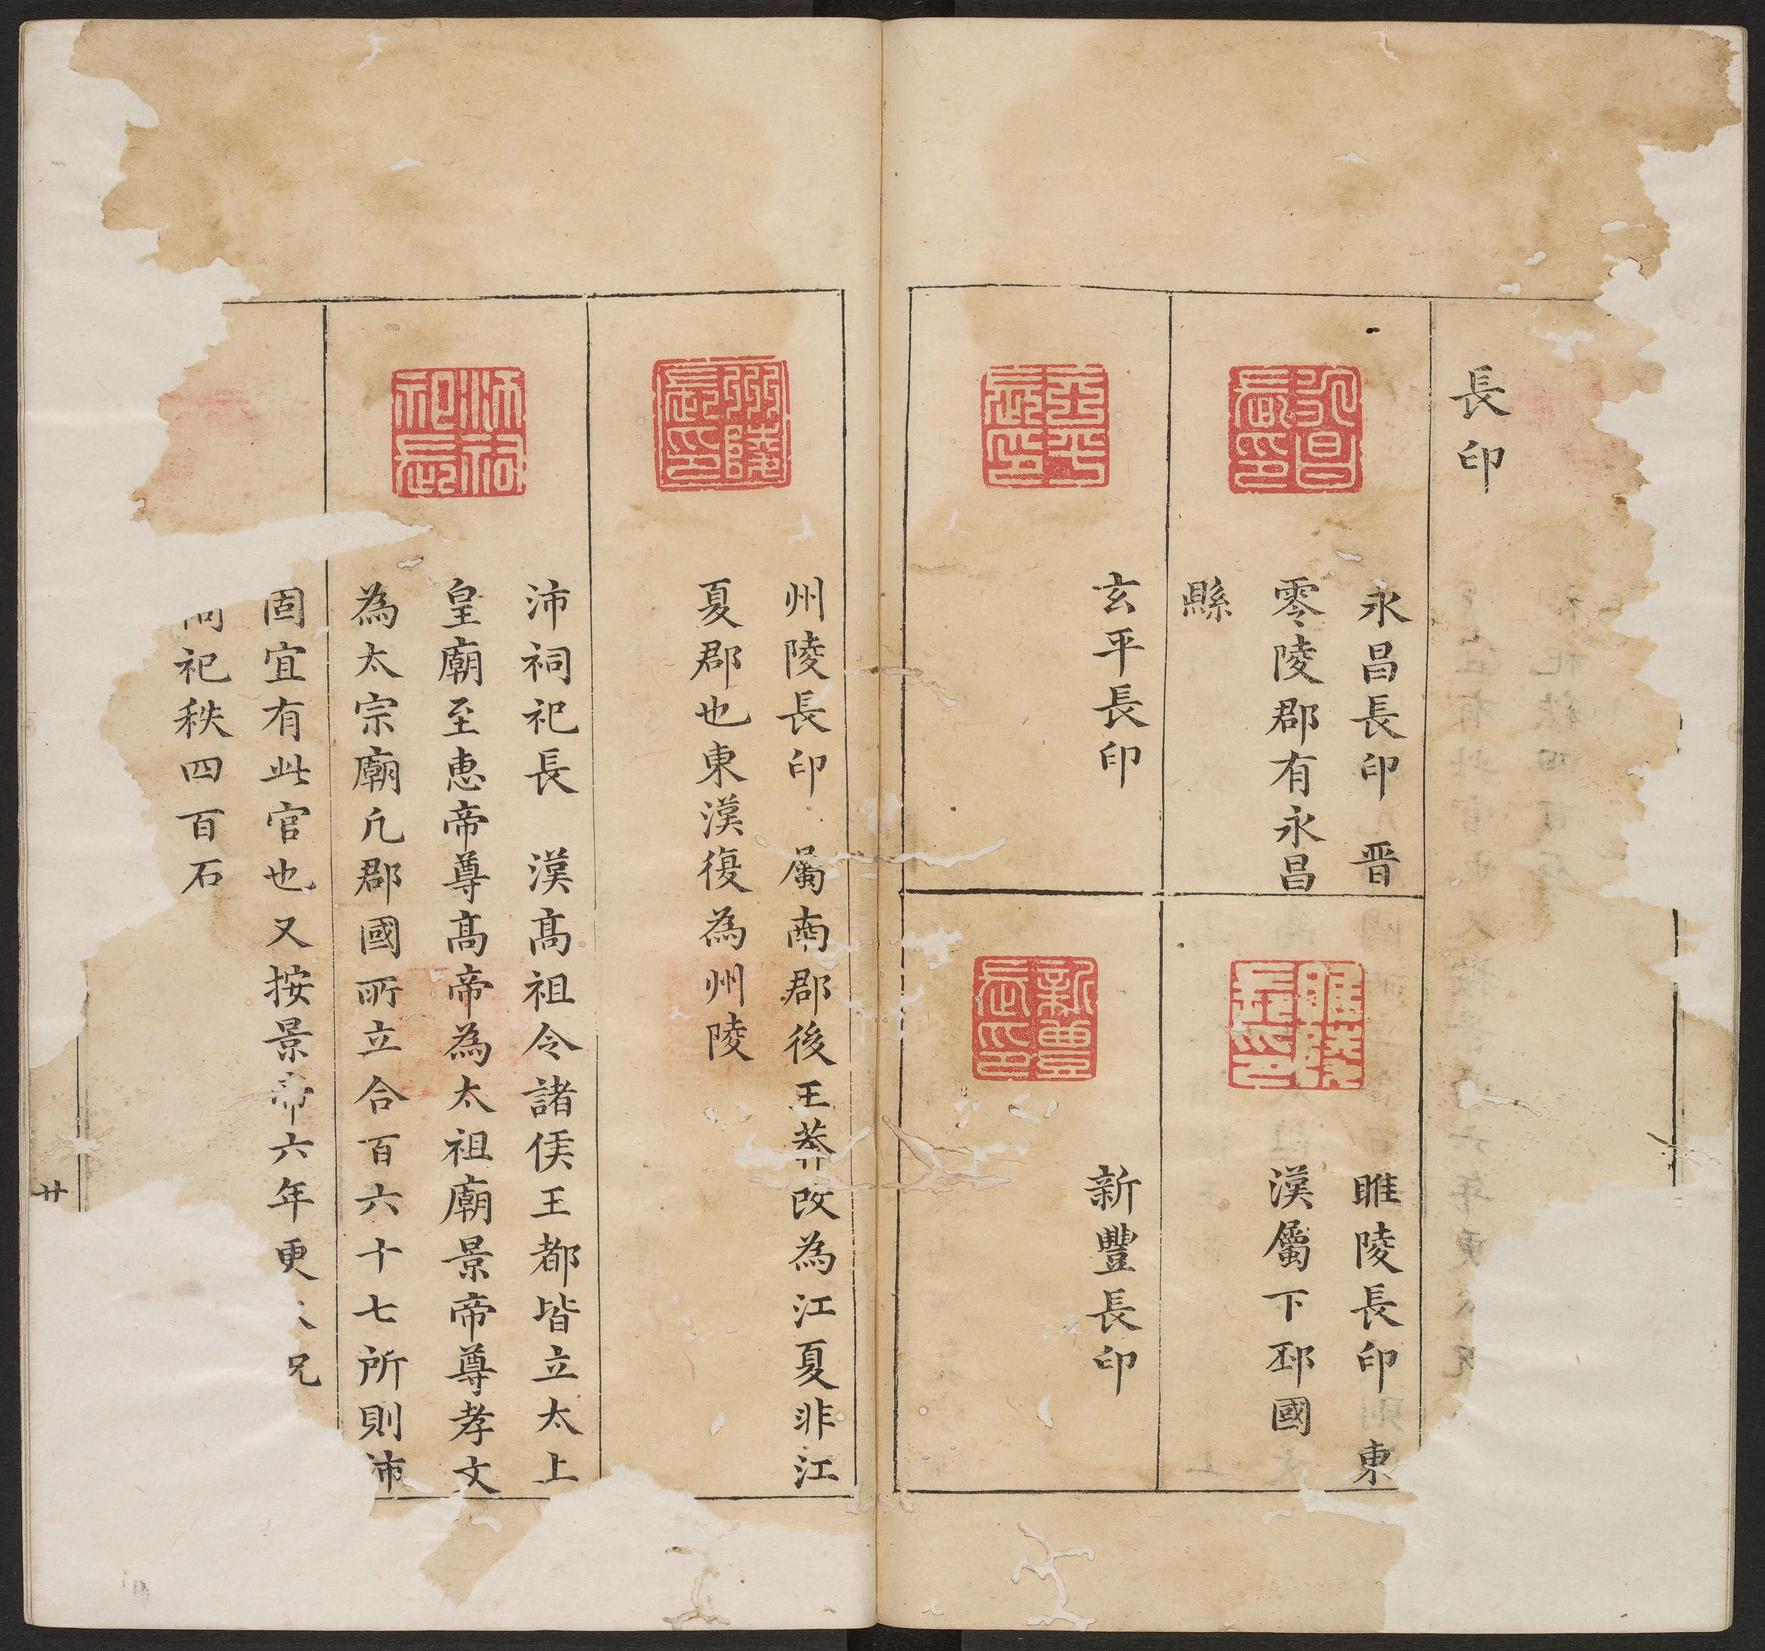 長印
永昌長印 晋
零陵郡有永昌
縣
睢陵長印 東
漢屬下邳國
玄平長印
新豐長印
州陵長印 屬南郡後王莽改為江夏非江
夏郡也東漢復為州陵
沛祠祀長 漢高祖令諸侯王都皆立太上
皇廟至惠帝尊高帝為太祖廟景帝尊孝文
為太宗廟凡郡國所立合百六十七所則沛
固宜有此官也又按景帝六年更
祀秩四百石
廿